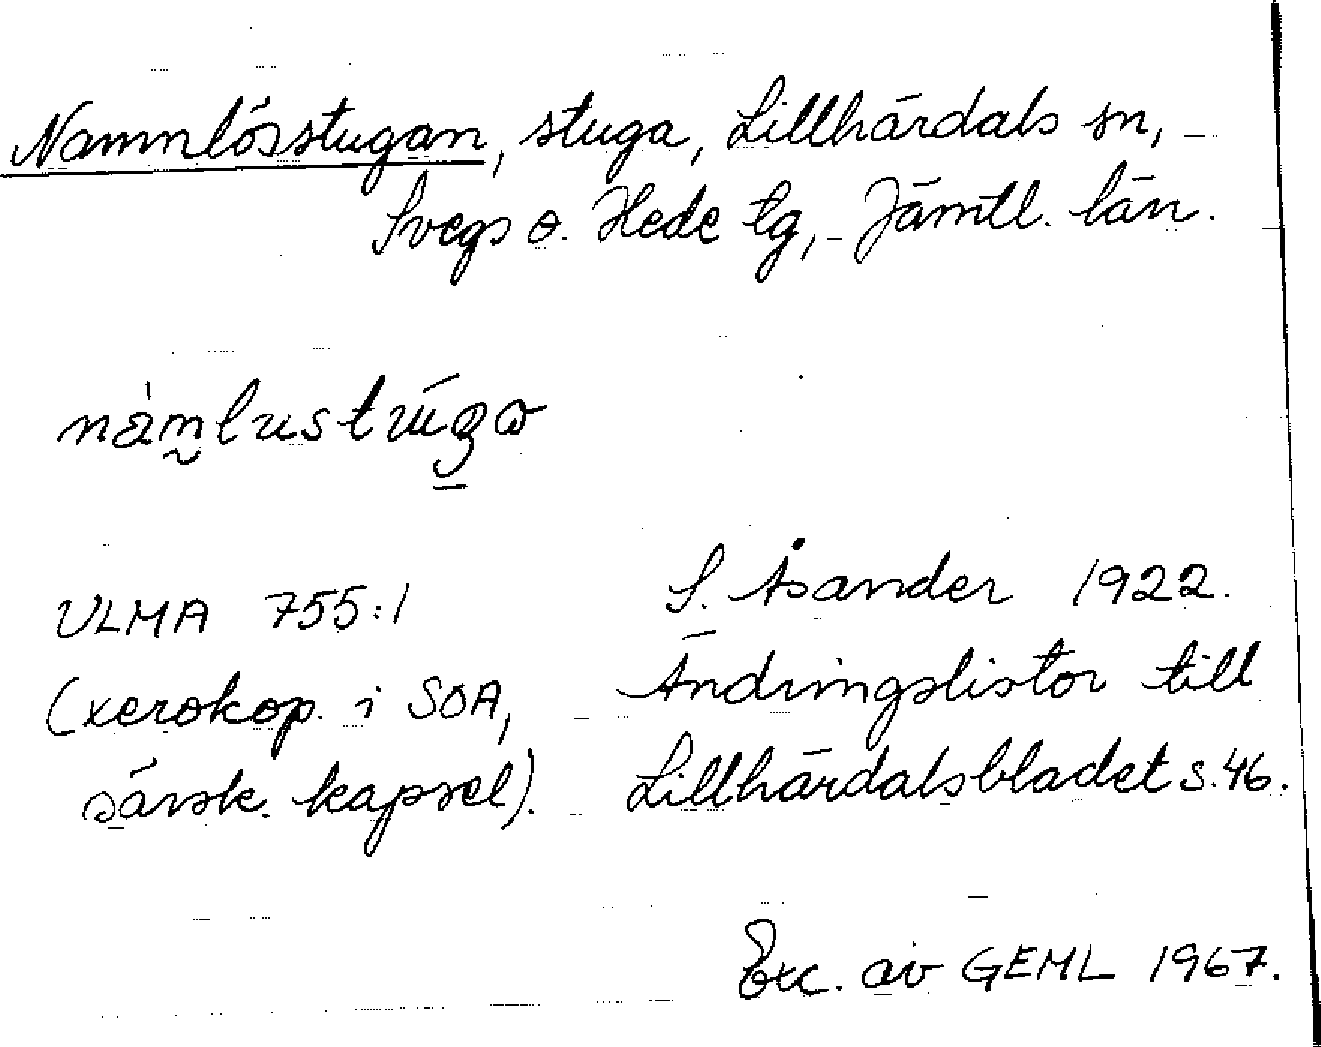 Namnlösstugan, stuga, Lillhärdals sn,
Svegs o. Hede tg, Jämtl. län.
nàm̰lustúga
ULMA 755:1 S. Åsander 1922.
(xerokop. i SOA, Ändringslistor till
särsk. kapsel). Lillhärdalsbladet s. 46.
Exc. av GEML 1967.